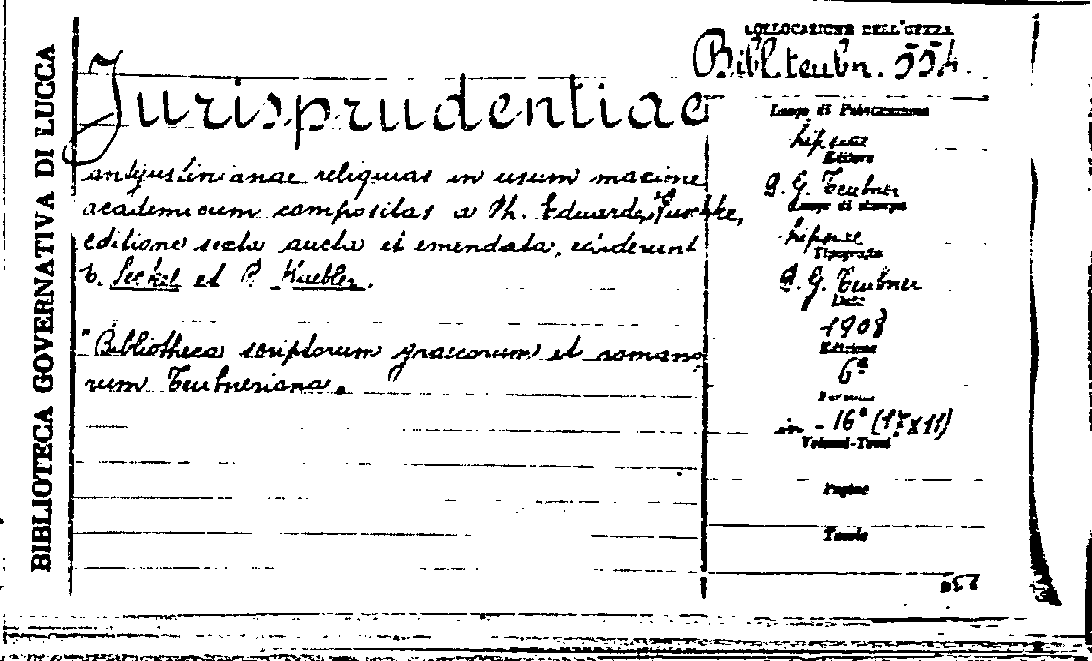 BIBLIOTECA GOVERNATIVA DI LUCCA
COLLOCAZIONE DELL'OPERA
Bibl. teubn. 554.
Jurisprudentiae
antejustinianae reliquias in usum maxime
academicum compositas a Ph. Eduardo Huschke,
editione sexta aucta et emendata, ediderunt
E. Seckel et B. Kuebler.
"Bibliotheca scriptorum graecorum et romano
rum Teubneriana.
Luogo di Pubblicazione
Lipsiae
Editore
B. G. Teubner
Luogo di stampa
Lipsiae
Tipografia
B. G. Teubner
Data
1908
Edizione
6ª
Formato
in - 16° (17x11)
Volumi-Tomi
Pagine
Tavole